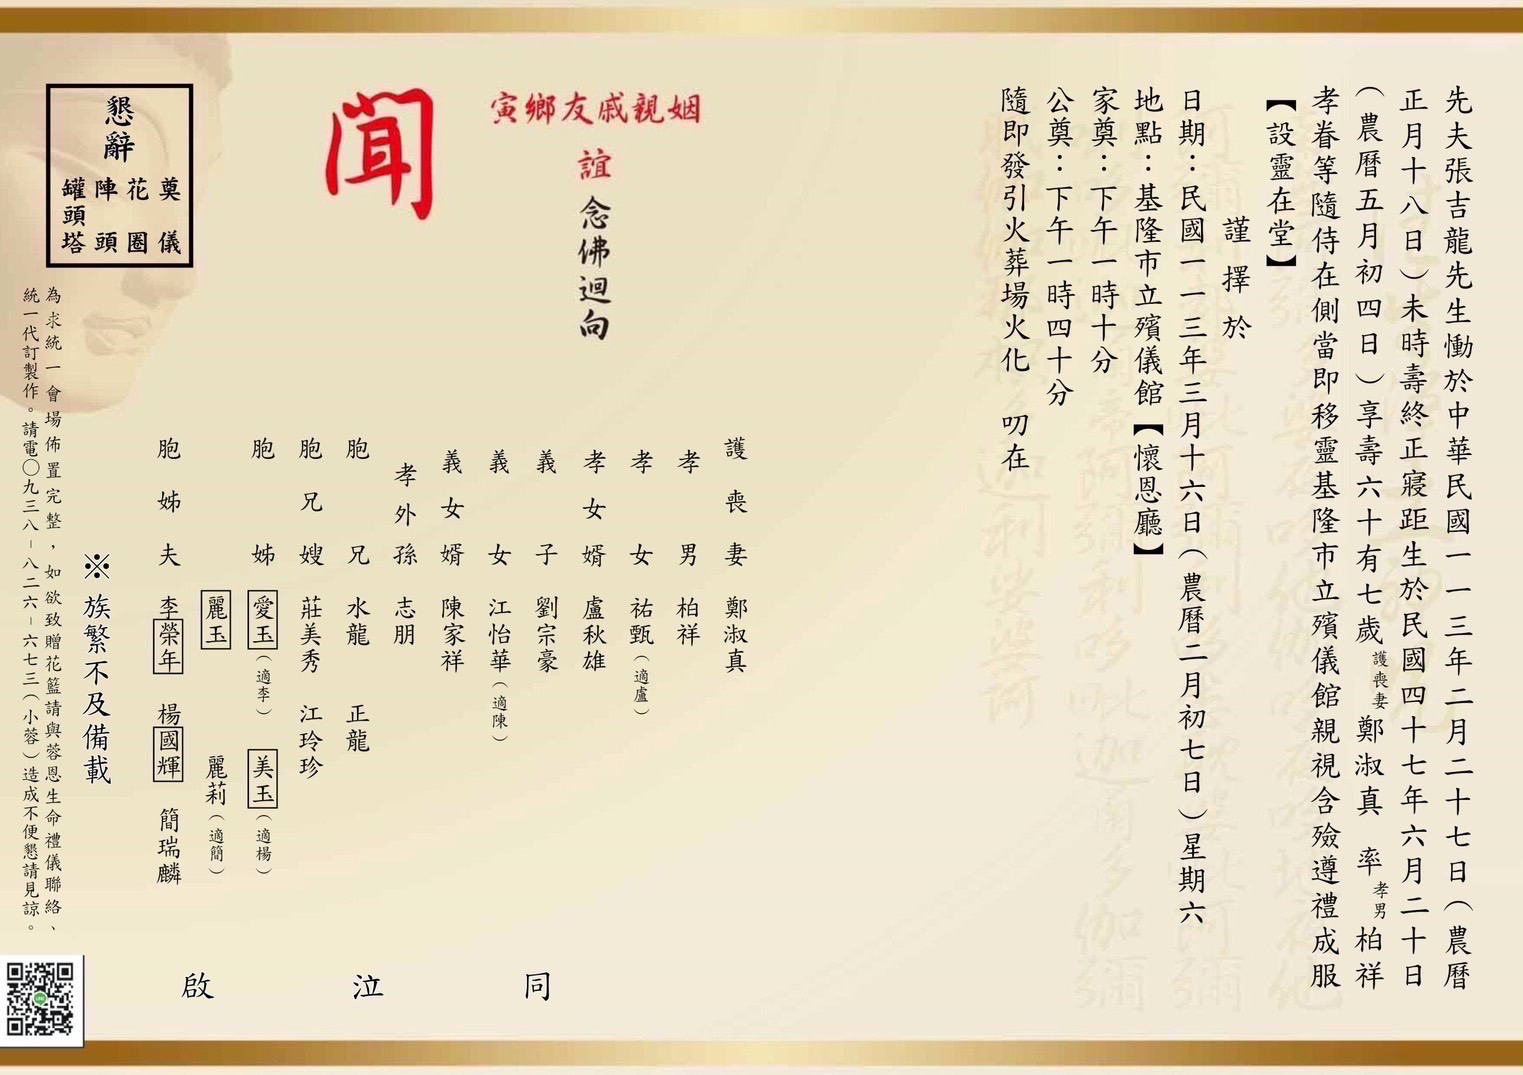 先夫張吉龍先生慟於中華民國一一三年二月二十七日（農曆
正月十八日）未時壽終正寢距生於民國四十七年六月二十日
（農曆五月初四日）享壽六十有七歲 護喪妻 鄭淑真 率 孝男 柏祥
孝眷等隨侍在側當即移靈基隆市立殯儀館親視含殮遵禮成服
【設靈在堂】
謹擇於
日期：民國一一三年三月十六日（農曆二月初七日）星期六
地點：基隆市立殯儀館【懷恩廳】
家奠：下午一時十分
公奠：下午一時四十分
隨即發引火葬場火化 叨在
姻親戚友鄉寅
誼 念佛迴向
聞
護喪妻 鄭淑真
孝男 柏祥
孝女 祐甄（適盧）
孝女婿 盧秋雄
義子 劉宗豪
義女 江怡華（適陳）
義女婿 陳家祥
孝外孫 志朋
胞兄 水龍 正龍
胞兄嫂 莊美秀 江玲珍
胞姊 愛玉（適李） 美玉（適楊）
麗玉 麗莉（適簡）
胞姊夫 李榮年 楊國輝 簡瑞麟
※族繁不及備載
同泣啟
懇辭
奠儀
花圈
陣頭
罐頭塔
為求統一會場佈置完整，如欲致贈花籃請與蓉恩生命禮儀聯絡、
統一代訂製作。請電〇九三八－八二六－六七三（小蓉）造成不便懇請見諒。